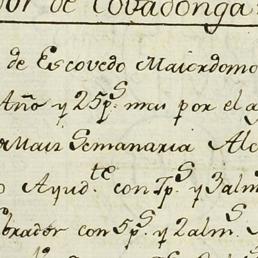 or de Covadonga
de Escovedo Maiordomo
Año y 25p.s mas por el a
Mais Semanaria Alc
o Ayud.te con 7p.s y 3 alm
brador con 5p.s y 2 alm.s